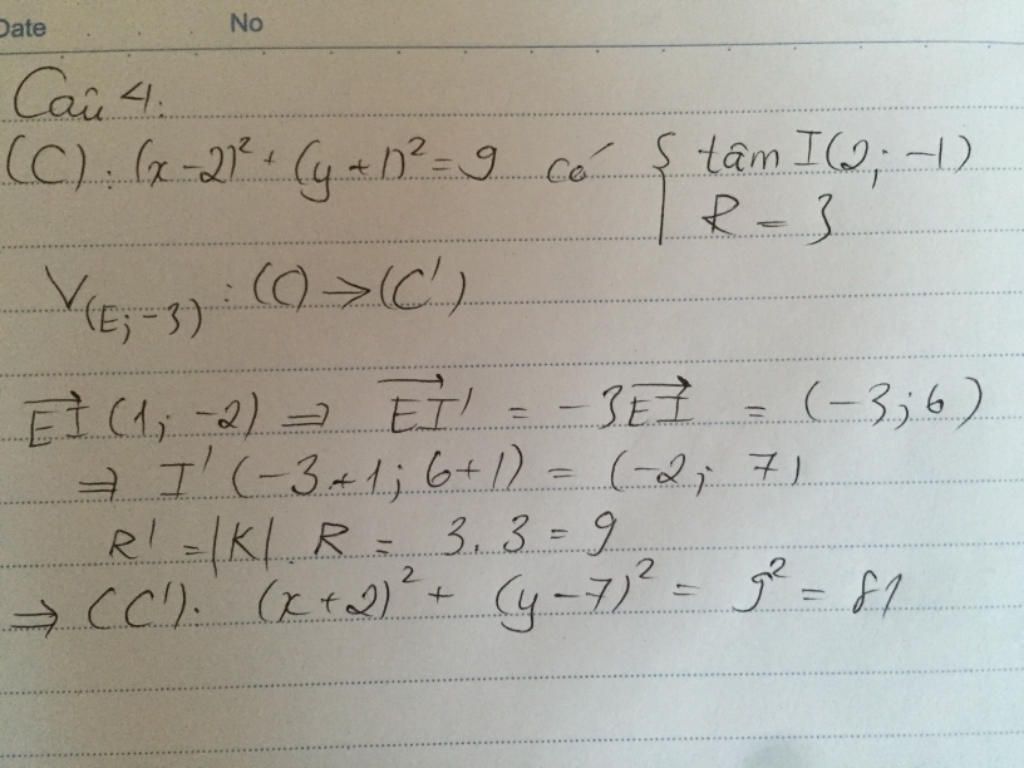 Date No
Câu 4:
(C): (x-2)² + (y+1)² = 9 có { tâm I(2; -1)
R = 3
V(E; -3) : (C) → (C')
EI⃗ (1; -2) ⇒ EI'⃗ = -3EI⃗ = (-3; 6)
⇒ I' (-3+1; 6+1) = (-2; 7)
R' = |K| . R = 3. 3 = 9
⇒ (C'). (x+2)² + (y-7)² = 9² = 81